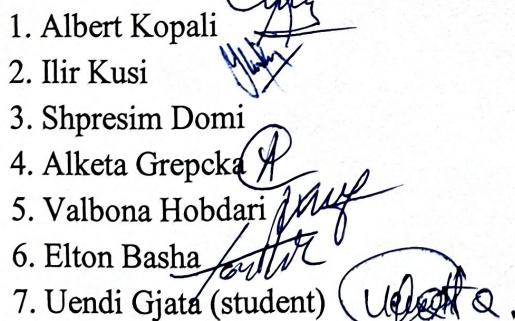 1. Albert Kopali
2. Ilir Kusi
3. Shpresim Domi
4. Alketa Grepcka
5. Valbona Hobdari
6. Elton Basha
7. Uendi Gjata (student)